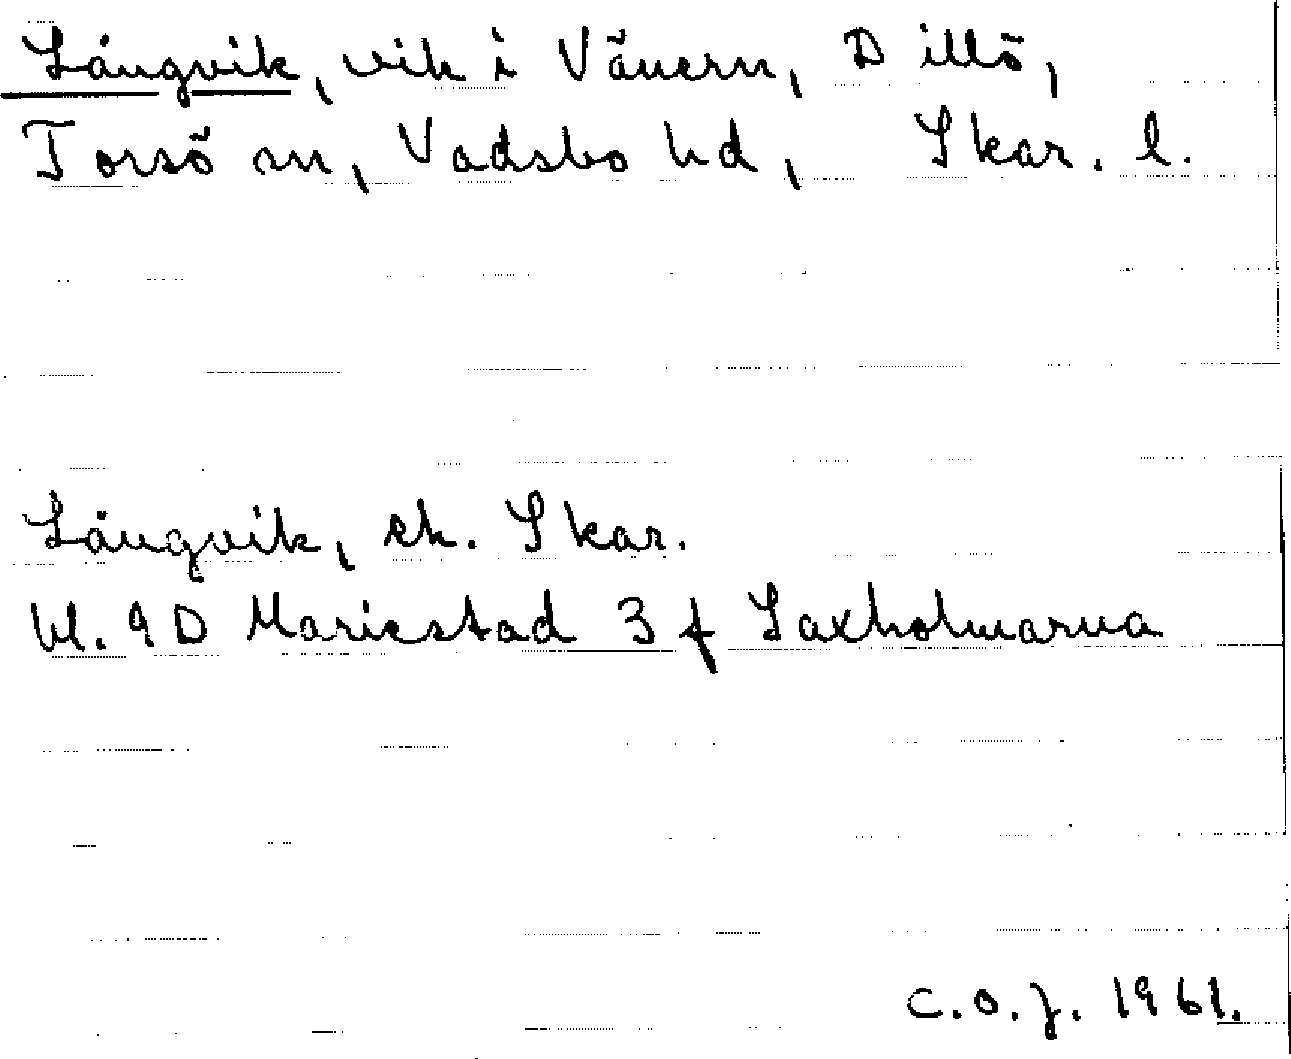 Långvik, vik i Vänern, Dillö,
Torsö sn, Vadsbo hd, Skar. l.
Långvik, ek. Skar.
bl. 9D Mariestad 3 f Laxholmarna
C.O.J. 1961.